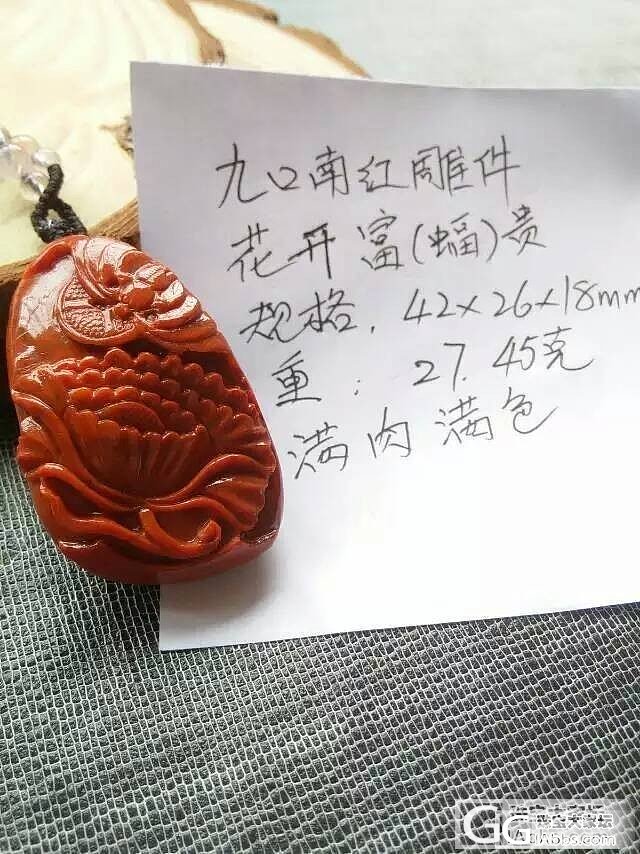 九口南红雕件
花开富(蝠)贵
规格. 42×26×18mm
重: 27.45克
满肉满色
GG